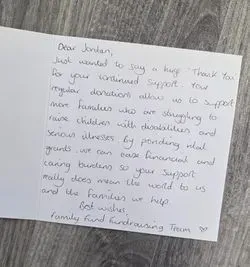 Dear Jordan,
Just wanted to say a huge 'Thank You'
for your continued support. Your
regular donations allow us to support
more families who are struggling to
raise children with disabilities and
serious illnesses. By providing vital
grants, we can ease financial and
caring burdens so your support
really does mean the world to us
and the families we help.
Best wishes,
Family Fund Fundraising Team ♡